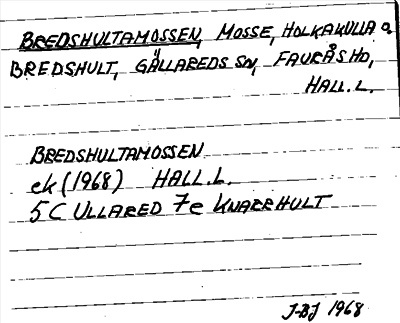 BREDSHULTAMOSSEN, MOSSE, HOLKAKULLA o.
BREDSHULT, GÄLLAREDS SN, FAURÅS HD,
HALL.L.
BREDSHULTAMOSSEN
ek (1968) HALL.L.
5C ULLARED 7e KNARRHULT
J-BJ 1968